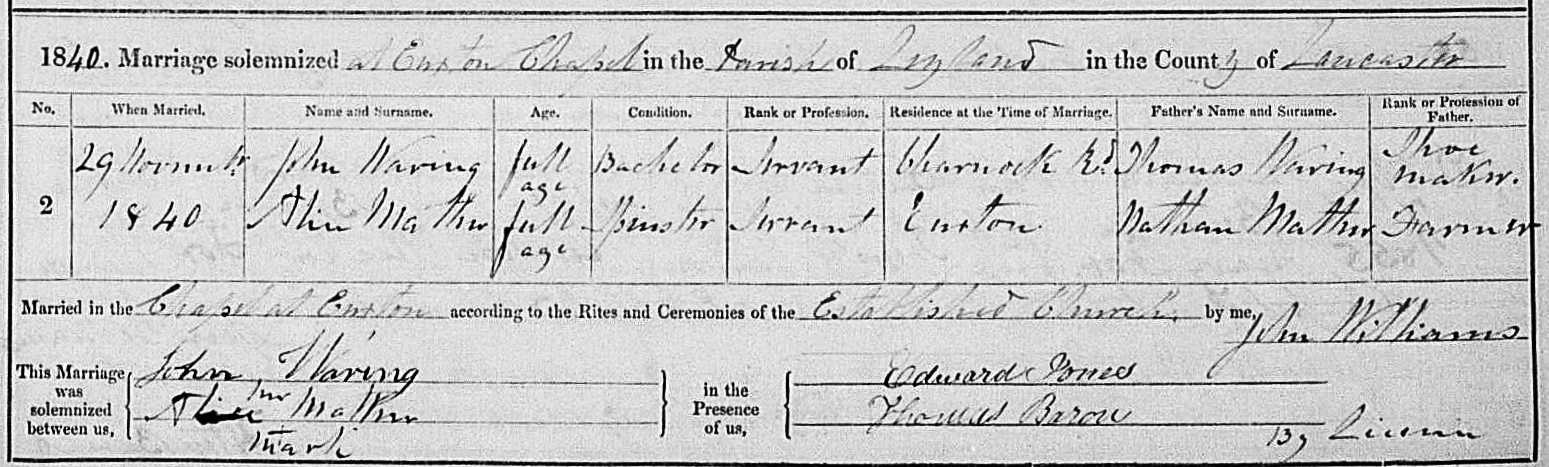 1840. Marriage solemnized at Euxton Chapel in the Parish of Leyland in the County of Lancaster
No. When Married. Name and Surname. Age. Condition. Rank or Profession. Residence at the Time of Marriage. Father's Name and Surname. Rank or Profession of Father.
2 29 Novembr 1840 John Waring full age Bachelor Servant Charnock Rd. Thomas Waring Shoe maker.
Alice Mather full age Spinster Servant Euxton Nathan Mather Farmer
Married in the Chapel at Euxton according to the Rites and Ceremonies of the Established Church, by me, John Williams
This Marriage was solemnized between us, John Waring in the Presence of us, Edward Jones
Alice her Mather Thomas Baron
mark By Licence